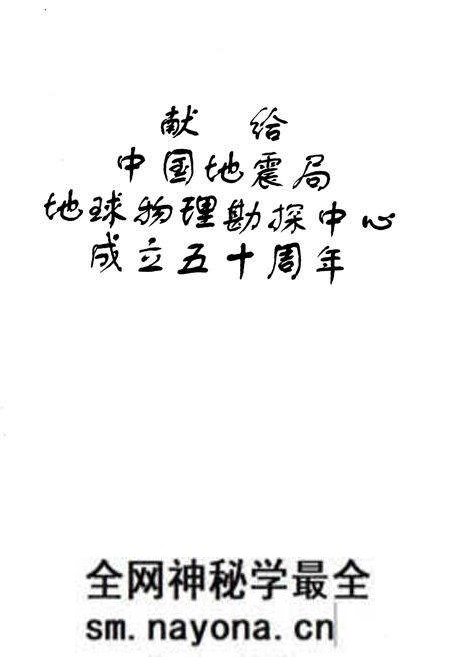 献 给
中国地震局
地球物理勘探中心
成立五十周年
全网神秘学最全
sm.nayona.cn